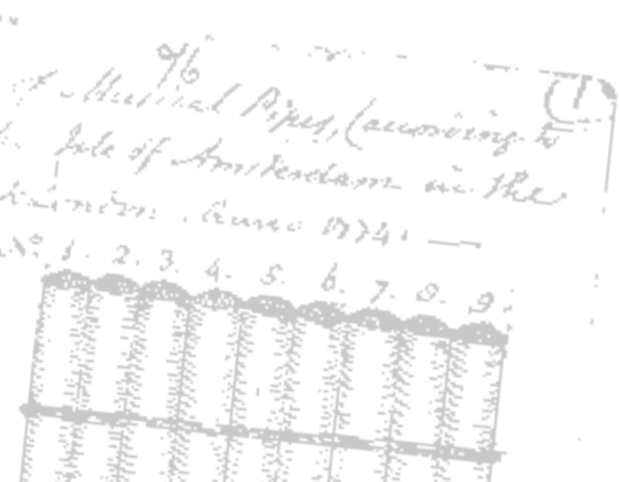 96
Musical Pipes, (according to
Isle of Amsterdam in the
London. Anno 1774.
No. 1. 2. 3. 4. 5. 6. 7. 8. 9.